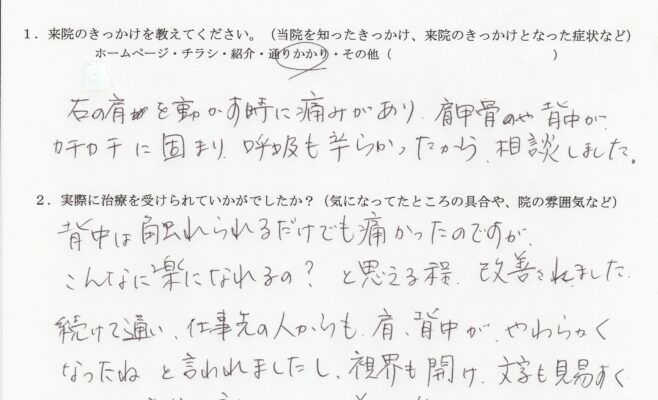 1．来院のきっかけを教えてください。（当院を知ったきっかけ、来院のきっかけとなった症状など）
ホームページ・チラシ・紹介・通りかかり・その他（　　　　　　　　　　）
右の肩を動かす時に痛みがあり、肩甲骨や背中が
カチカチに固まり、呼吸も辛らかったから、相談しました。
2．実際に治療を受けられていかがでしたか？（気になってたところの具合や、院の雰囲気など）
背中は触れられるだけでも痛かったのですが、
こんなに楽になれるの？と思える程、改善されました。
続けて通い、仕事先の人からも、肩、背中が、やわらかく
なったねと言われましたし、視界も開け、文字も見易すく